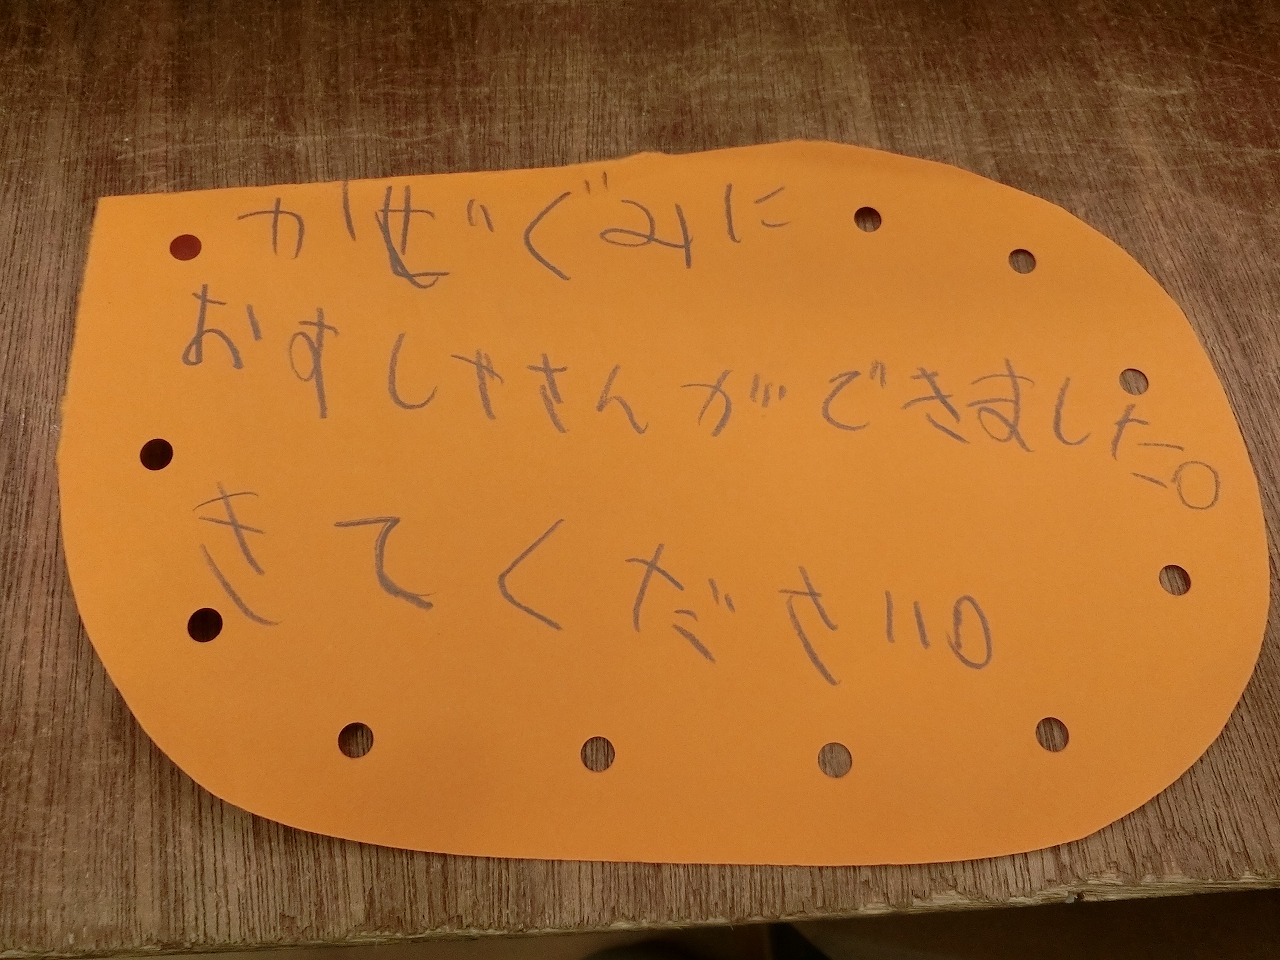 かぜぐみに
おすしやさんができました。
きてください。